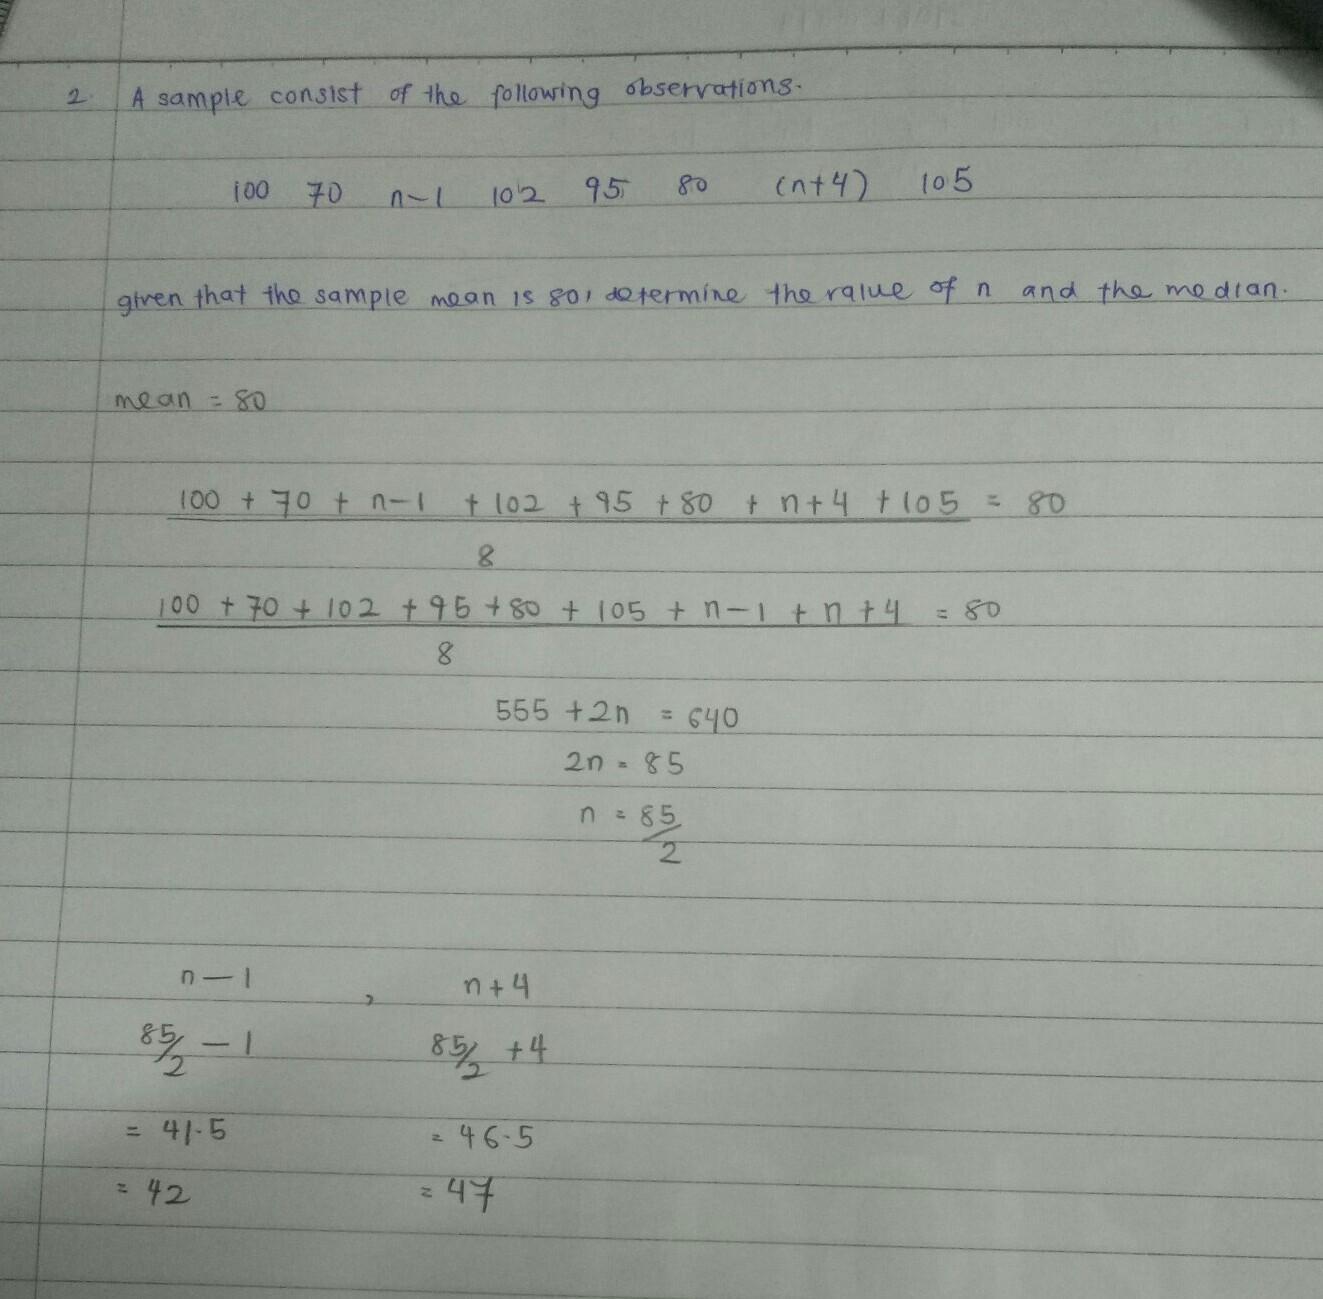 2. A sample consist of the following observations.
100 70 n-1 102 95 80 (n+4) 105
given that the sample mean is 80, determine the value of n and the median.
mean = 80
100 + 70 + n-1 + 102 + 95 + 80 + n+4 + 105 = 80
8
100 + 70 + 102 + 95 + 80 + 105 + n-1 + n+4 = 80
8
555 + 2n = 640
2n = 85
n = 85/2
n-1 , n+4
85/2 - 1 85/2 + 4
= 41.5 = 46.5
= 42 = 47